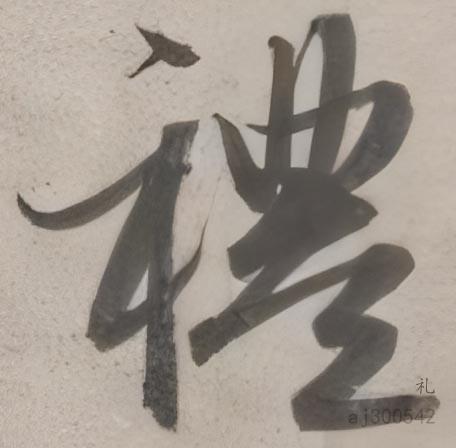 禮
札
aj300542